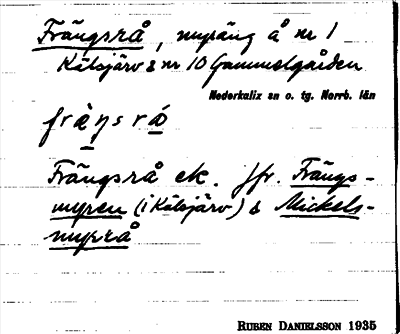 Frängsrå, myräng å nr 1
Kälsjärv & nr 10 Gammelgården
Nederkalix sn o. tg. Norrb. län
fràŋsrå
Frängsrå ek. Jfr. Frängs-
myren (i Kälsjärv) & Mickels-
myrrå
RUBEN DANIELSSON 1935